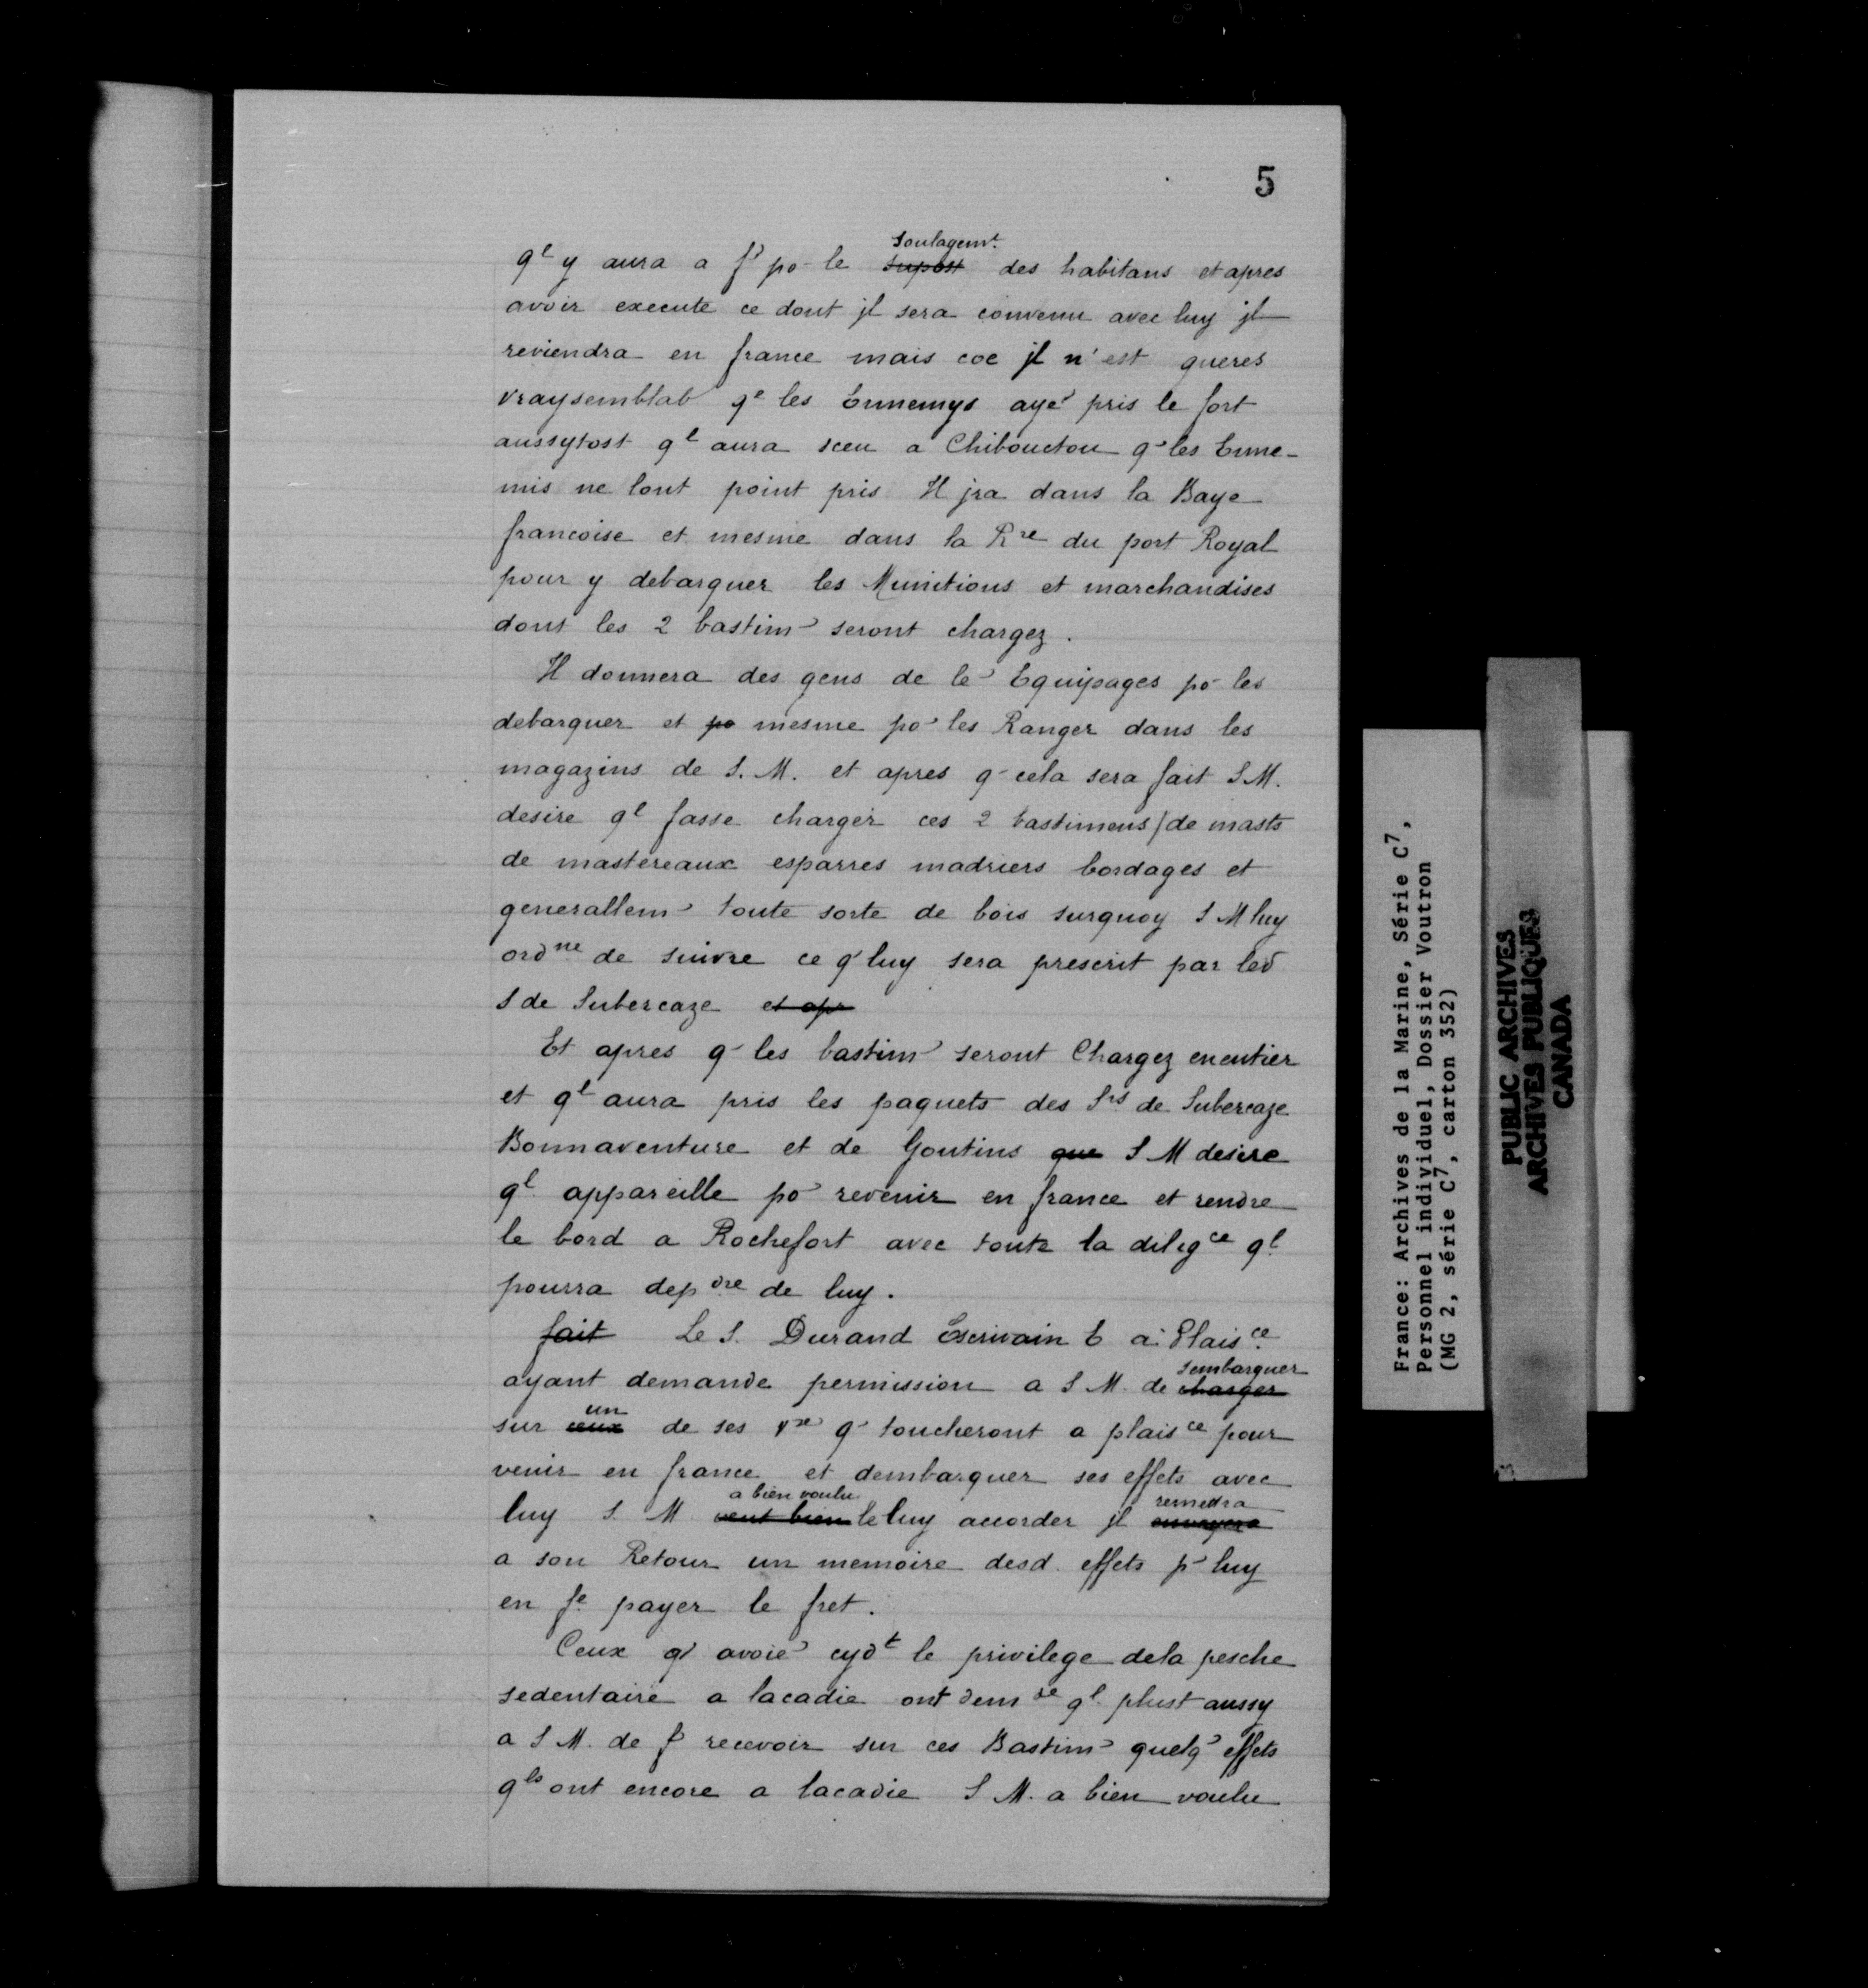 5
soulagemt.
ql y aura a f' po- le supost des habitans et apres
avoir execute ce dont jl sera convenu avec luy jl
reviendra en france mais coe jl n'est gueres
vraysemblab qe les Ennemys aye' pris le fort
aussytost ql aura sceu a Chibouctou q- les Enne-
mis ne lont point pris Il jra dans la Baye
francoise et mesme dans la Rre du port Royal
pour y debarquer les Munitions et marchandises
dont les 2 bastim' seront chargez.
Il donnera des gens de le' Equipages po- les
debarquer et po mesme po' les Ranger dans les
magazins de S. M. et apres q- cela sera fait S M.
desire ql fasse charger ces 2 bastimens / de masts
de mastereaux esparres madriers bordages et
generallem' toute sorte de bois surquoy S M luy
ordne de suivre ce q' luy sera prescrit par led
S de Subercaze et apr
Et apres q- les bastim' seront Chargez enentier
et ql aura pris les paquets des Srs de Subercaze
Bonnaventure et de Goutins que S M desire
ql appareille po' revenir en france et rendre
le bord a Rochefort avec toute la diligce ql
pourra depdre de luy.
fait Le S. Durand Escrivain E a Plaisce
ayant demande permission a S M. de charger
sembarquer
sur ceux de ses vx q' toucheront a plaisce pour
un
venir en france et dembarquer ses effets avec
a bien voulu remettra
luy S. M veut bien le luy accorder jl envoyera
a son Retour un memoire desd. effets p' luy
en fe payer le fret.
Ceux q' avoie' cydt le privilege dela pesche
sedentaire a lacadie ont demde ql plust aussy
a S M. de f' recevoir sur ces Bastim' quelq' effets
qls ont encore a lacadie S M. a bien voulu
France: Archives de la Marine, Série C7,
Personnel individuel, Dossier Voutron
(MG 2, série C7, carton 352)
PUBLIC ARCHIVES
ARCHIVES PUBLIQUES
CANADA